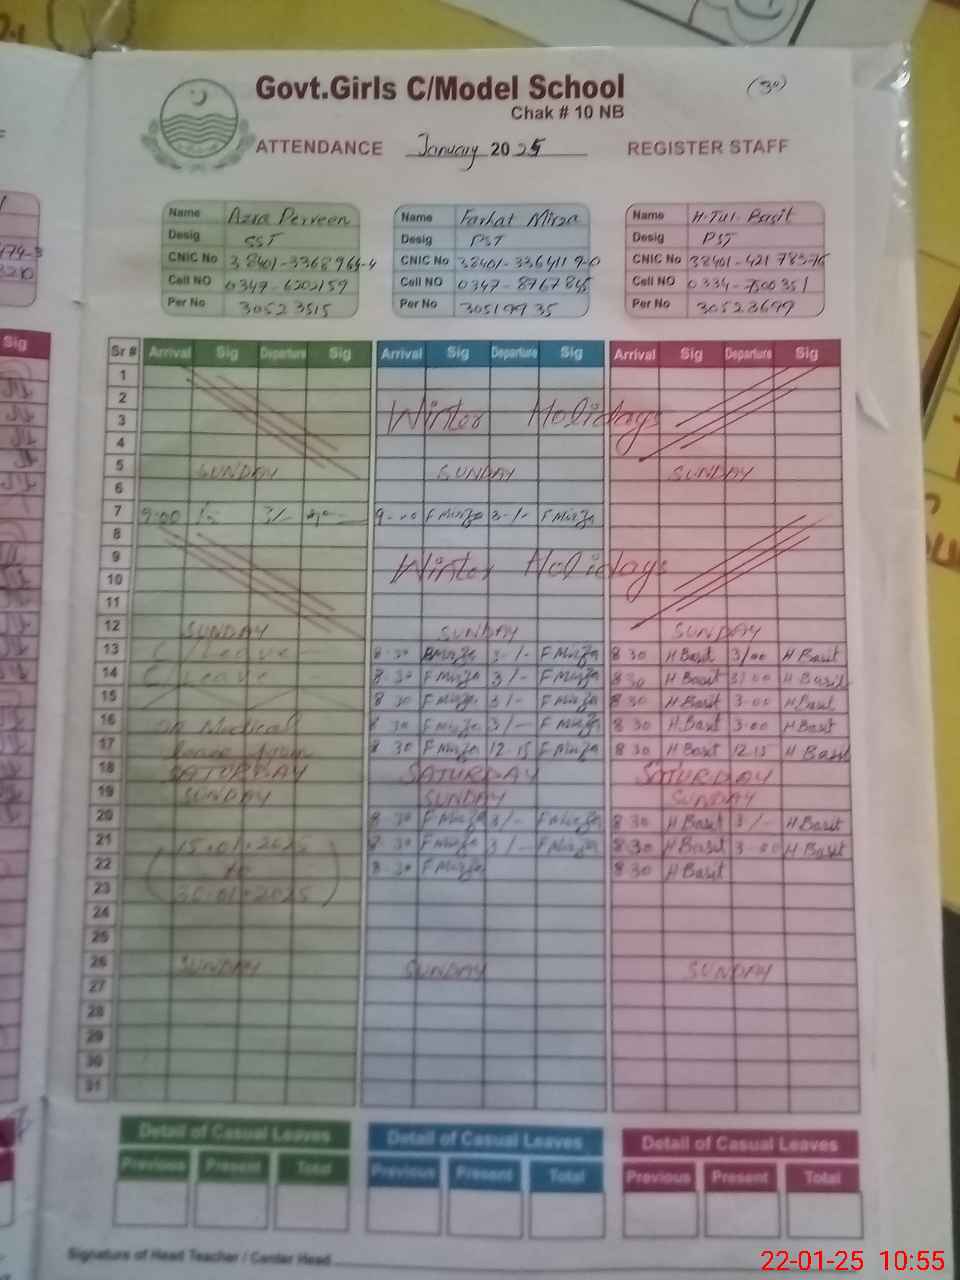 Govt.Girls C/Model School
(30)
Chak # 10 NB
ATTENDANCE January 2025 REGISTER STAFF
Name Azra Perveen Name Farhat Mirza Name H-Tul-Basit
Desig SST Desig PST Desig PST
CNIC No 38401-3368964-4 CNIC No 38401-3364119-0 CNIC No 38401-421
Cell NO 0347-6202159 Cell NO 0347-8967845 Cell NO 0334-7500351
Per No 30523515 Per No 30519935 Per No 30523699
Sr # Arrival Sig Departure Sig Arrival Sig Departure Sig Arrival Sig Departure Sig
1
2
Winter Holidays
3
4
5 SUNDAY SUNDAY SUNDAY
6
7 9-00 3/- 9-00 F Mirza 3-/- F Mirza
8
9 Winter Holidays
10
11
12 SUNDAY SUNDAY SUNDAY
13 C/Leave 8-30 Mirza 3-/- F Mirza 8 30 H Basit 3/00 H Basit
14 C/Leave 8-30 F Mirza 3/- F Mirza 8 30 H Basit 3/00 H Basit
15 8 30 F Mirza 3/- F Mirza 8 30 H Basit 3-00 H Basit
16 On Medical 8 30 F Mirza 3/- F Mirza 8 30 H.Basit 3-00 H Basit
17 leave from 8 30 F Mirza 12-15 F Mirza 8 30 H Basit 12 15 H Basit
18 SATURDAY SATURDAY SATURDAY
19 SUNDAY SUNDAY SUNDAY
20 8 30 F Mirza 3/- F Mirza 8 30 H Basit 3/- H Basit
21 15-01-2025 8-30 F Mirza 3/- F Mirza 8 30 H Basit 3-00 H Basit
22 to 8-30 F Mirza 8 30 H Basit
23 30-01-2025
24
25
26 SUNDAY SUNDAY SUNDAY
27
28
29
30
31
Detail of Casual Leaves Detail of Casual Leaves Detail of Casual Leaves
Previous Present Total Previous Present Total Previous Present Total
Signature of Head Teacher / Center Head
22-01-25 10:55